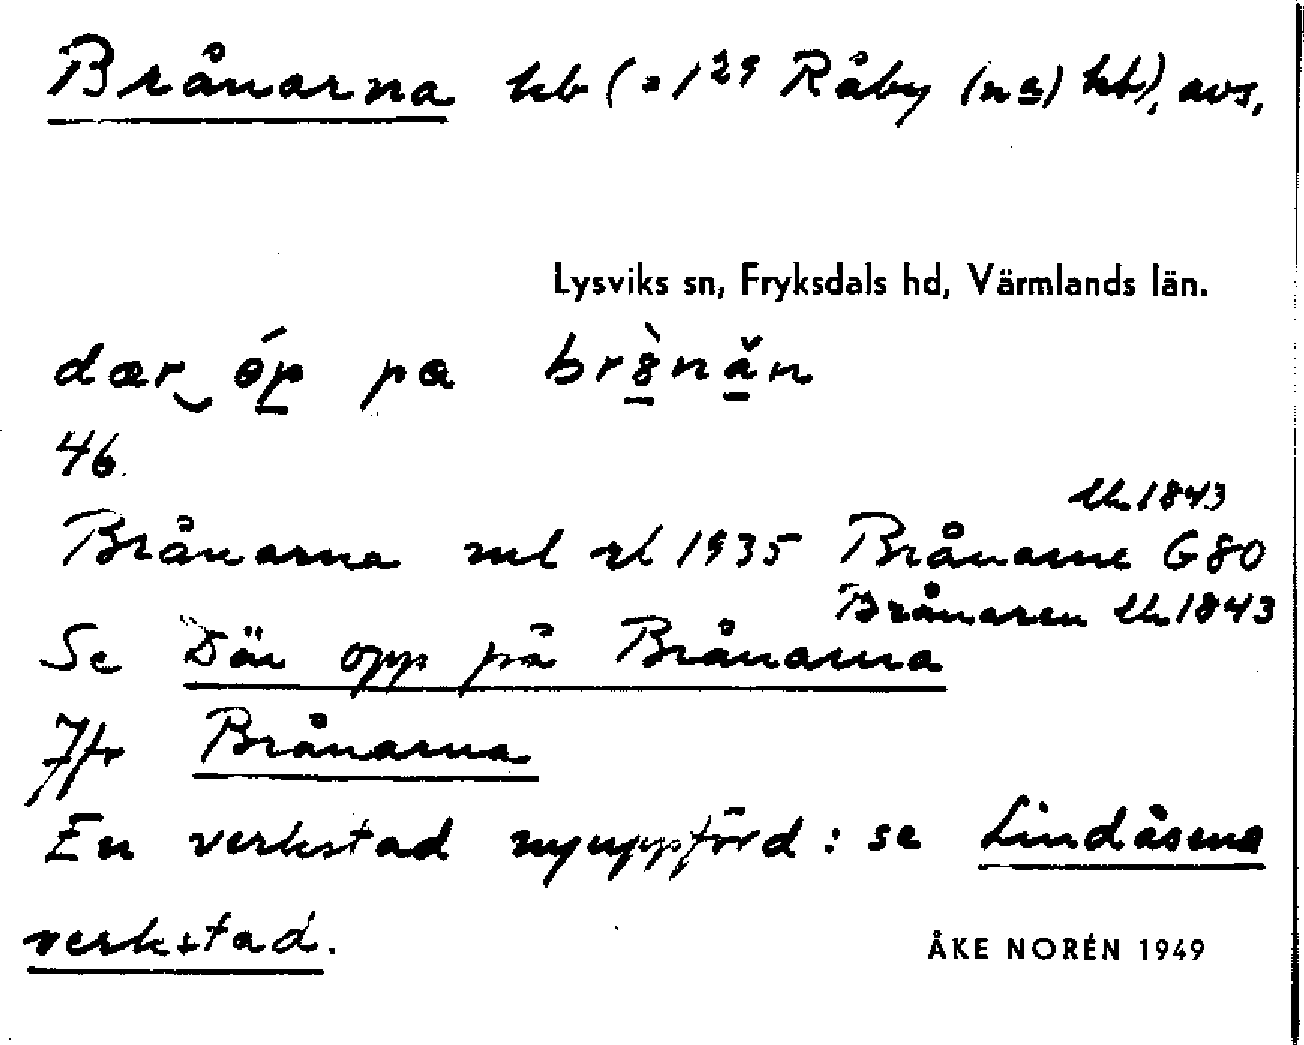 Brånarna hb (=1²⁹ Råby (na) hb), avs.
Lysviks sn, Fryksdals hd, Värmlands län.
dær óp pa
46.
lk 1843
Brånarna ml rl 1935 Brånarne G 80
Brånaren lk 1843
Se Där opp på Brånarna
Jfr Brånarna
En verkstad nyuppförd: se Lindåsens
verkstad.
ÅKE NORÉN 1949